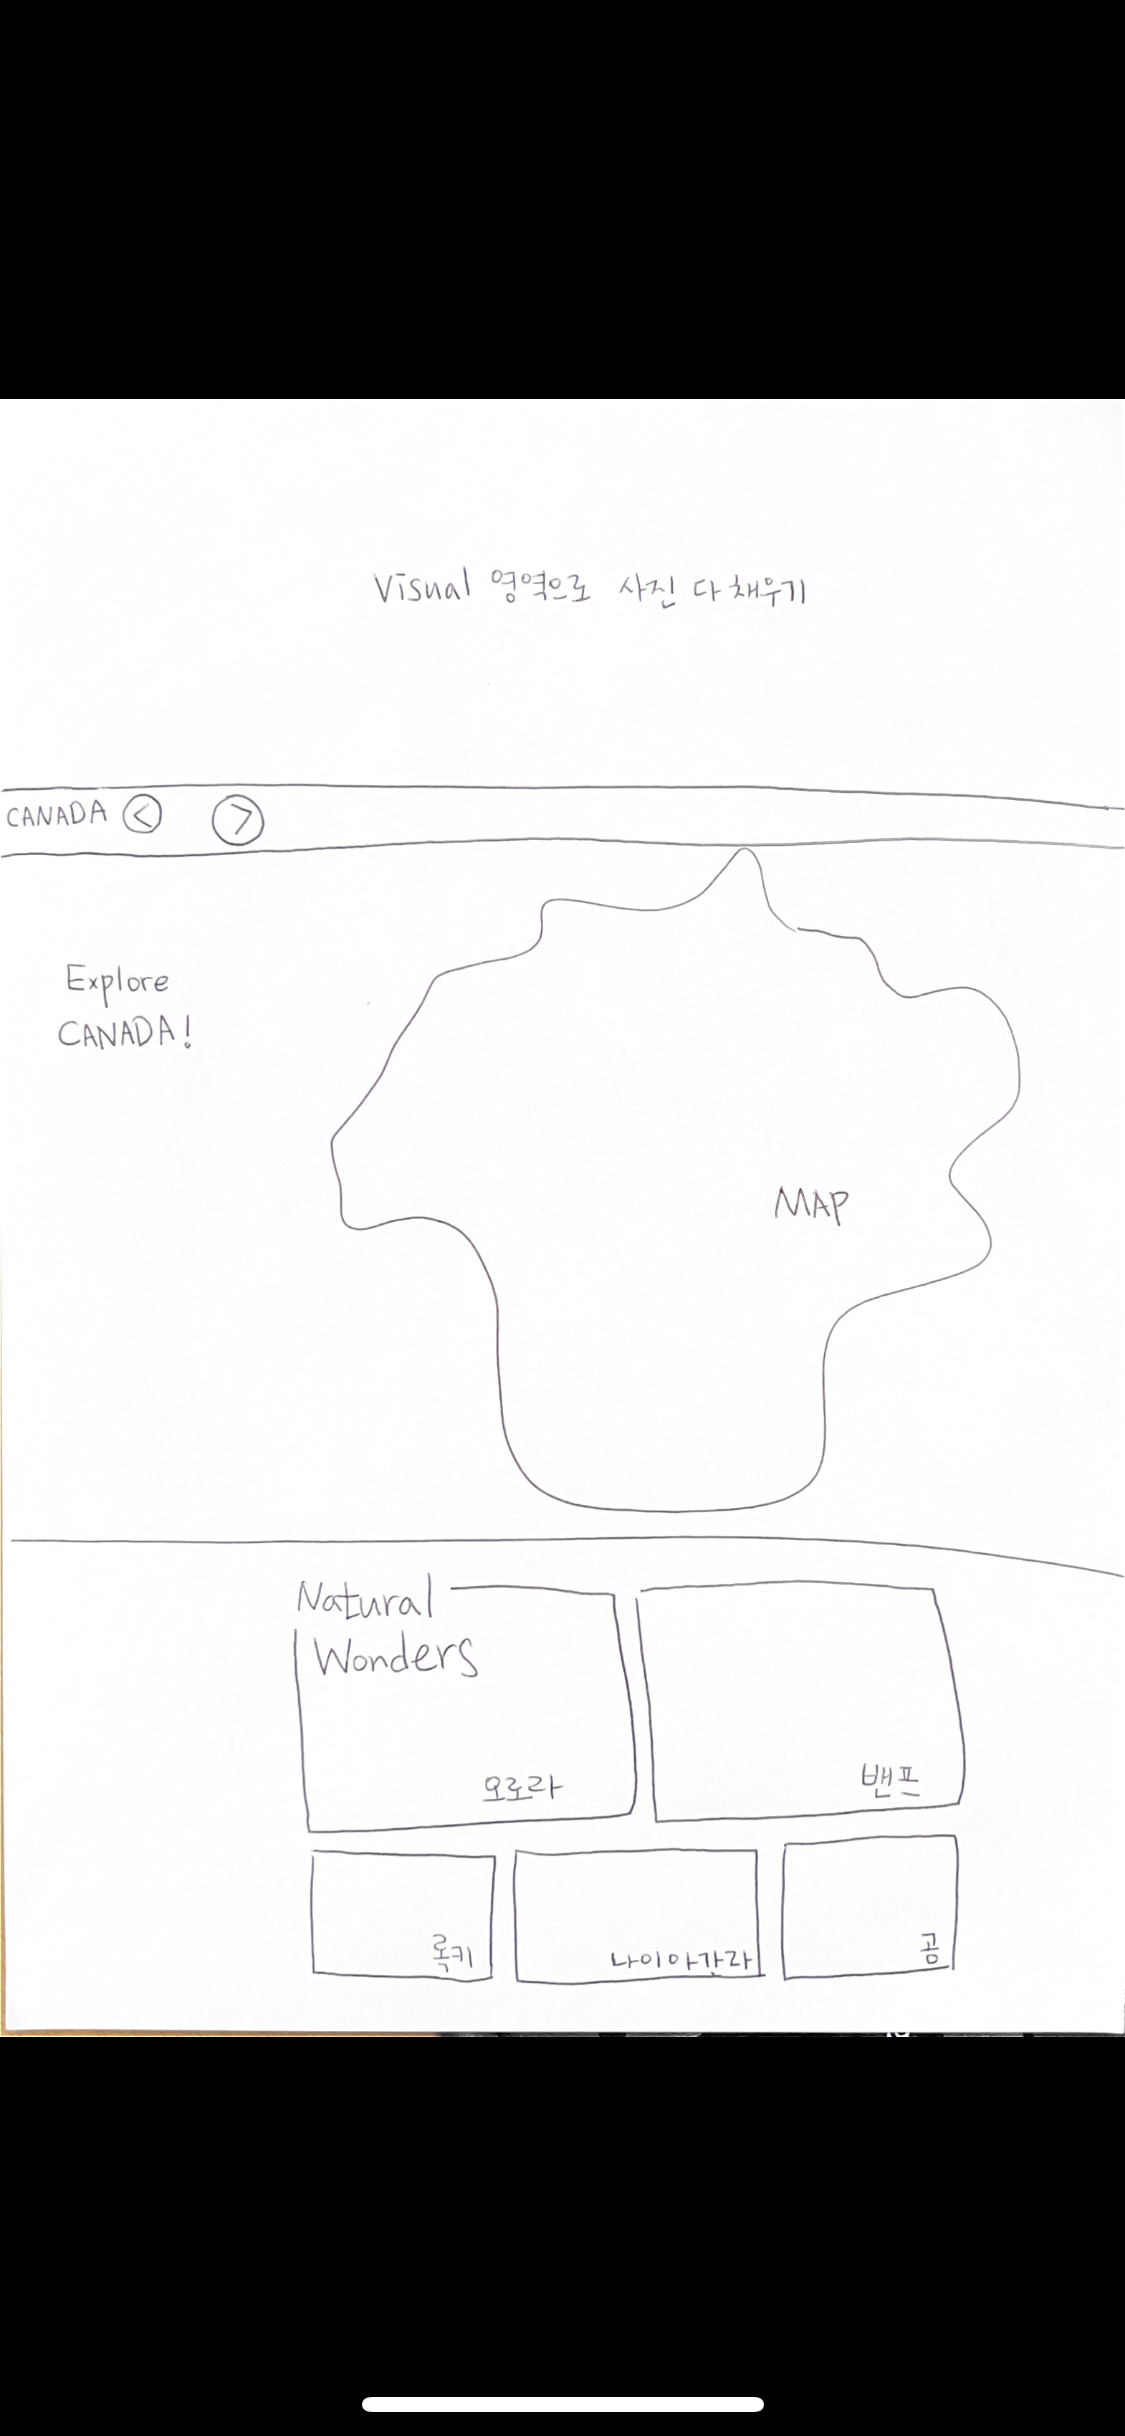 Visual 영역으로 사진 다 채우기
CANADA < >
Explore
CANADA!
MAP
Natural
Wonders
오로라
밴프
록키
나이아간라
곰